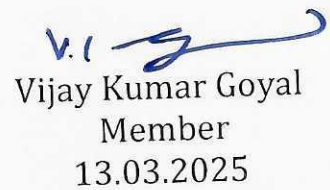 Vijay Kumar Goyal
Member
13.03.2025